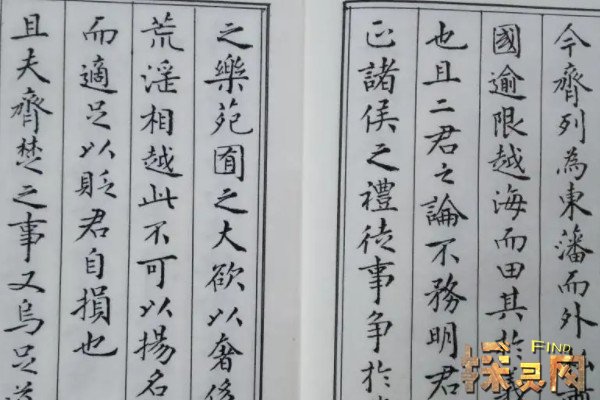 今齊列為東藩而外
國逾限越海而田其於
也且二君之論不務明君
正諸侯之禮徒事争於
之樂苑囿之大欲以奢侈
荒淫相越此不可以揚名
而適足以貶君自損也
且夫齊楚之事又烏足道
FIND
探灵网